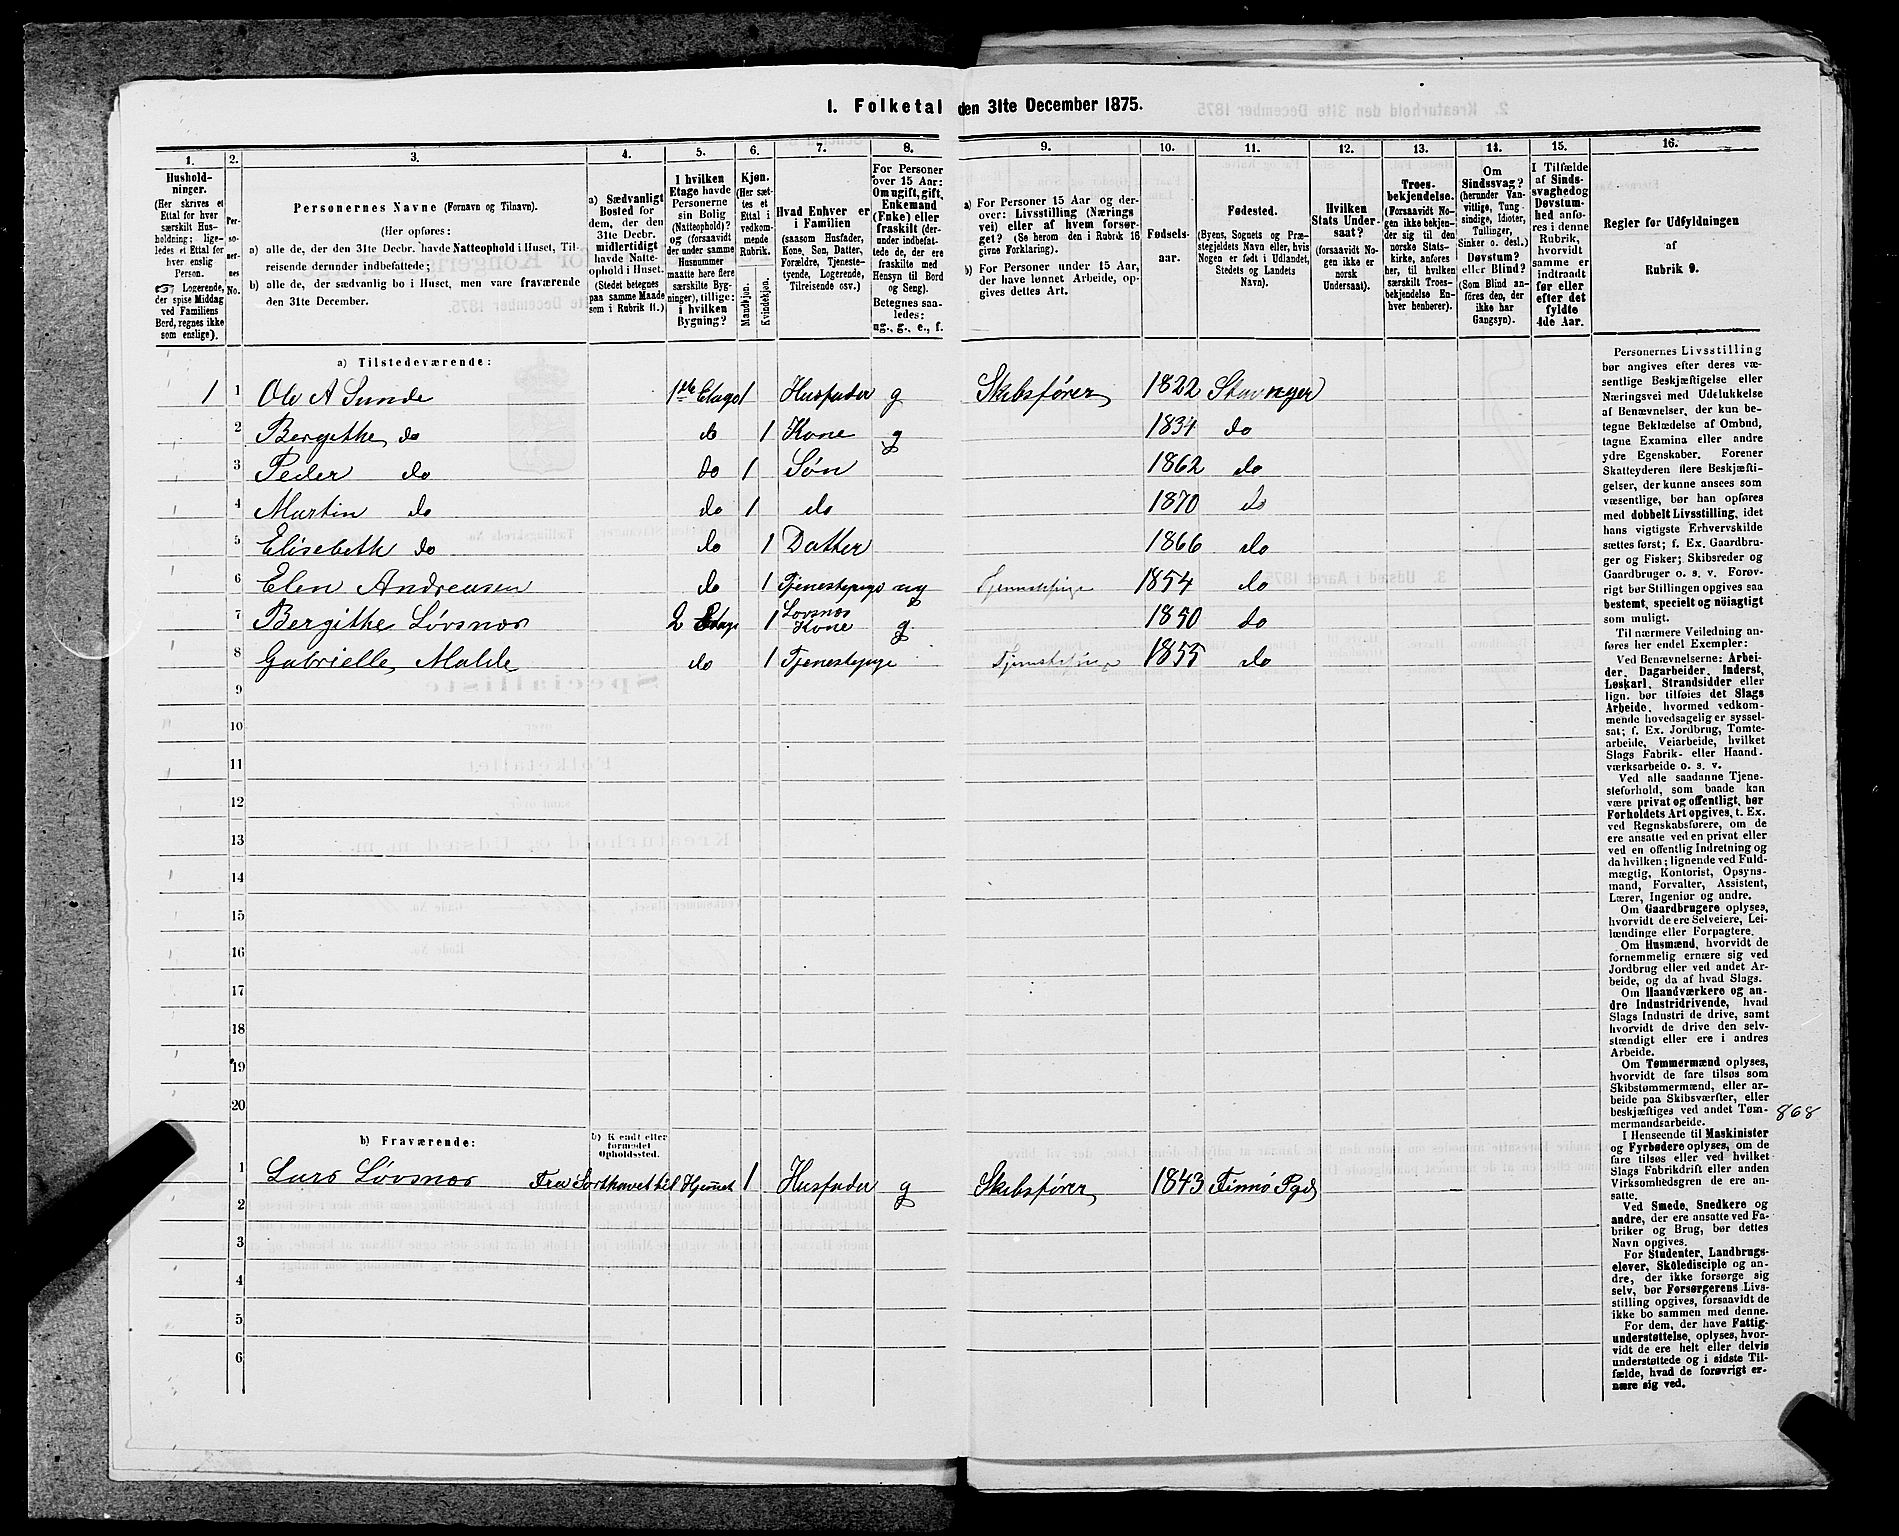 I. Folketal den 31te December 1875.
1. 2. 3. 4. 5. 6. 7. 8. 9. 10. 11. 12. 13. 14. 15. 16.
Husholdninger.
(Her skrives et
Ettal for hver
særskilt Husholdning; ligeledes
et Ettal for
hver enslig
Person.
Logerende,
der spise Middag
ved Familiens
Bord, regnes ikke
som enslige).
Personernes No.
Personernes Navne (Fornavn og Tilnavn).
(Her opføres:
a) alle de, der den 31te Decbr. havde Natteophold i Huset, Tilreisende
derunder indbefattede;
b) alle de, der sædvanlig bo i Huset, men vare fraværende
den 31te December.
a) Sædvanligt
Bosted for
dem, der den
31te Decbr.
midlertidigt
havde Natteophold
i Huset.
(Stedet betegnes
paa samme Maade
som i Rubrik 11.)
I hvilken
Etage havde
Personerne
sin Bolig
(Natteophold)?
og (forsaavidt
der under samme
Husnummer
maatte høre flere
særskilte Bygninger),
tillige:
i hvilken
Bygning?
Kjøn.
(Her sættes
et
Ettal i
vedkommende
Rubrik.
Mandkjøn.
Kvindekjøn.
Hvad Enhver er
i Familien
(saasom Husfader,
Kone, Søn, Datter,
Forældre, Tjenestetyende,
Logerende,
Tilreisende osv.)
For Personer
over 15 Aar:
Om ugift, gift,
Enkemand
(Enke) eller
fraskilt (derunder
indbefattede
de, der ere
fraskilte med
Hensyn til Bord
og Seng).
Betegnes saaledes:
ug., g., e., f.
a) For Personer 15 Aar og derover:
Livsstilling (Nærings
vei) eller af hvem forsørget?
(Se herom den i Rubrik 16
givne Forklaring).
b) For Personer under 15 Aar,
der have lønnet Arbeide, opgives
dettes Art.
Fødselsaar.
Fødested.
(Byens, Sognets og Præstegjeldets
Navn eller, hvis
Nogen er født i Udlandet,
Stedets og Landets
Navn).
Hvilken
Stats Undersaat?
(forsaavidt Nogen
ikke er
norsk
Undersaat).
Troesbekjendelse.
(Forsaavidt Nogen
ikke bekjender
sig til den
norske Statskirke,
anføres
her, til hvilken
særskilt Troesbekjendelse
Enhver
henhører).
Om
Sindssvag?
(herunder Vanvittige,
Tungsindige,
Idioter,
Tullinger,
Sinker o. desl.)
Døvstum?
eller Blind?
(Som Blind anføres
den, der
ikke har
Gangsyn).
I Tilfælde
af Sindssvaghed og
Døvstumhed
anføres
i denne
Rubrik,
hvorvidt
samme er
indtraadt
før eller
efter det
fyldte
4de Aar.
Regler før Udfyldningen
af
Rubrik 9.
a) Tilstedeværende:
1 1 Ole A Sunde 1ste Etage 1 Husfader g Skibsfører 1822 Stavnger
2 Bergithe do do 1 Kone g 1834 do
3 Peder do do 1 Søn 1862 do
4 Martin do do 1 do 1870 do
5 Elisebeth do do 1 Datter 1866 do
6 Elen Andreasen do 1 Tjenestepige ug Tjenestepige 1854 do
7 Bergithe Løvsnæs 2 Etage 1 Løvsnæs Kone g 1850 do
8 Gabrielle Malde do 1 Tjenestepige Tjenestepige 1855 do
9
10
11
12
13
14
15
16
17
18
19
20
b) Fraværende:
b) Kjendt eller
formodet
Opholdssted.
1 Lars Løvsnæs Fra Northavet til Hjemmet 1 Husfader g Skibsfører 1843 Finnø Pgd
2
3
4
5
6
Personernes Livsstilling
bør angives efter deres væsentlige
Beskjæftigelse eller
Næringsvei med Udelukkelse
af Benævnelser, der kun betegne
Beklædelse af Ombud,
tagne Examina eller andre
ydre Egenskaber. Forener
Skatteyderen flere Beskjæftigelser,
der kunne ansees som
væsentlige, bør han opføres
med dobbelt Livsstilling, idet
hans vigtigste Erhvervskilde
sættes først; f. Ex. Gaardbruger
og Fisker; Skibsreder og
Gaardbruger o. s. v. Forøvrigt
bør Stillingen opgives saa
bestemt, specielt og nöiagtigt
som muligt.
Til nærmere Veiledning anføres
her endel Exempler:
Ved Benævnelserne: Arbeider,
Dagarbeider, Inderst,
Løskarl, Strandsidder eller
lign. bør tilføies det Slags
Arbeide, hvormed vedkommende
hovedsagelig er sysselsat;
f. Ex. Jordbrug, Tomtearbeide,
Veiarbeide, hvilket
Slags Fabrik- eller Haandværksarbeide
o. s. v.
Ved alle saadanne Tjenesteforhold,
som baade kan
være privat og offentligt, bør
Forholdets Art opgives, t. Ex.
ved Regnskabsførere, om de
ere ansatte ved en privat eller
ved en offentlig Indretning og
da hvilken; lignende ved Fuldmægtig,
Kontorist, Opsynsmand,
Forvalter, Assistent,
Lærer, Ingeniør og andre.
Om Gaardbrugere oplyses,
hvorvidt de ere Selveiere, Leilændinge
eller Forpagtere.
Om Husmænd, hvorvidt de
fornemmelig ernære sig ved
Jordbrug eller ved andet Arbeide,
og da af hvad Slags.
Om Haandværkere og andre
Industridrivende, hvad
Slags Industri de drive, samt
hvorvidt de drive den selvstændigt
eller ere i andres
Arbeide.
Om Tømmermænd oplyses,
hvorvidt de fare tilsøs som
Skibstømmermænd, eller arbeide
paa Skibsværfter, eller
beskjæftiges ved andet Tømmermandsarbeide.
868
I Henseende til Maskinister
og Fyrbødere oplyses, om de
fare tilsøs eller ved hvilket
Slags Fabrikdrift eller anden
Virksomhedsgren de ere ansatte.
Ved Smede, Snedkere og
andre, der ere ansatte ved Fabriker
og Brug, bør dettes
Navn opgives.
For Studenter, Landbrugselever,
Skoledisciple og andre,
der ikke forsørge sig
selv, bør Forsørgerens Livsstilling
opgives, forsaavidt de
ikke bo sammen med denne.
For dem, der have Fattigunderstøttelse,
oplyses, hvorvidt
de ere helt eller delvis
understøttede og i sidste Tilfælde,
hvad de forøvrigt ernære
sig ved.